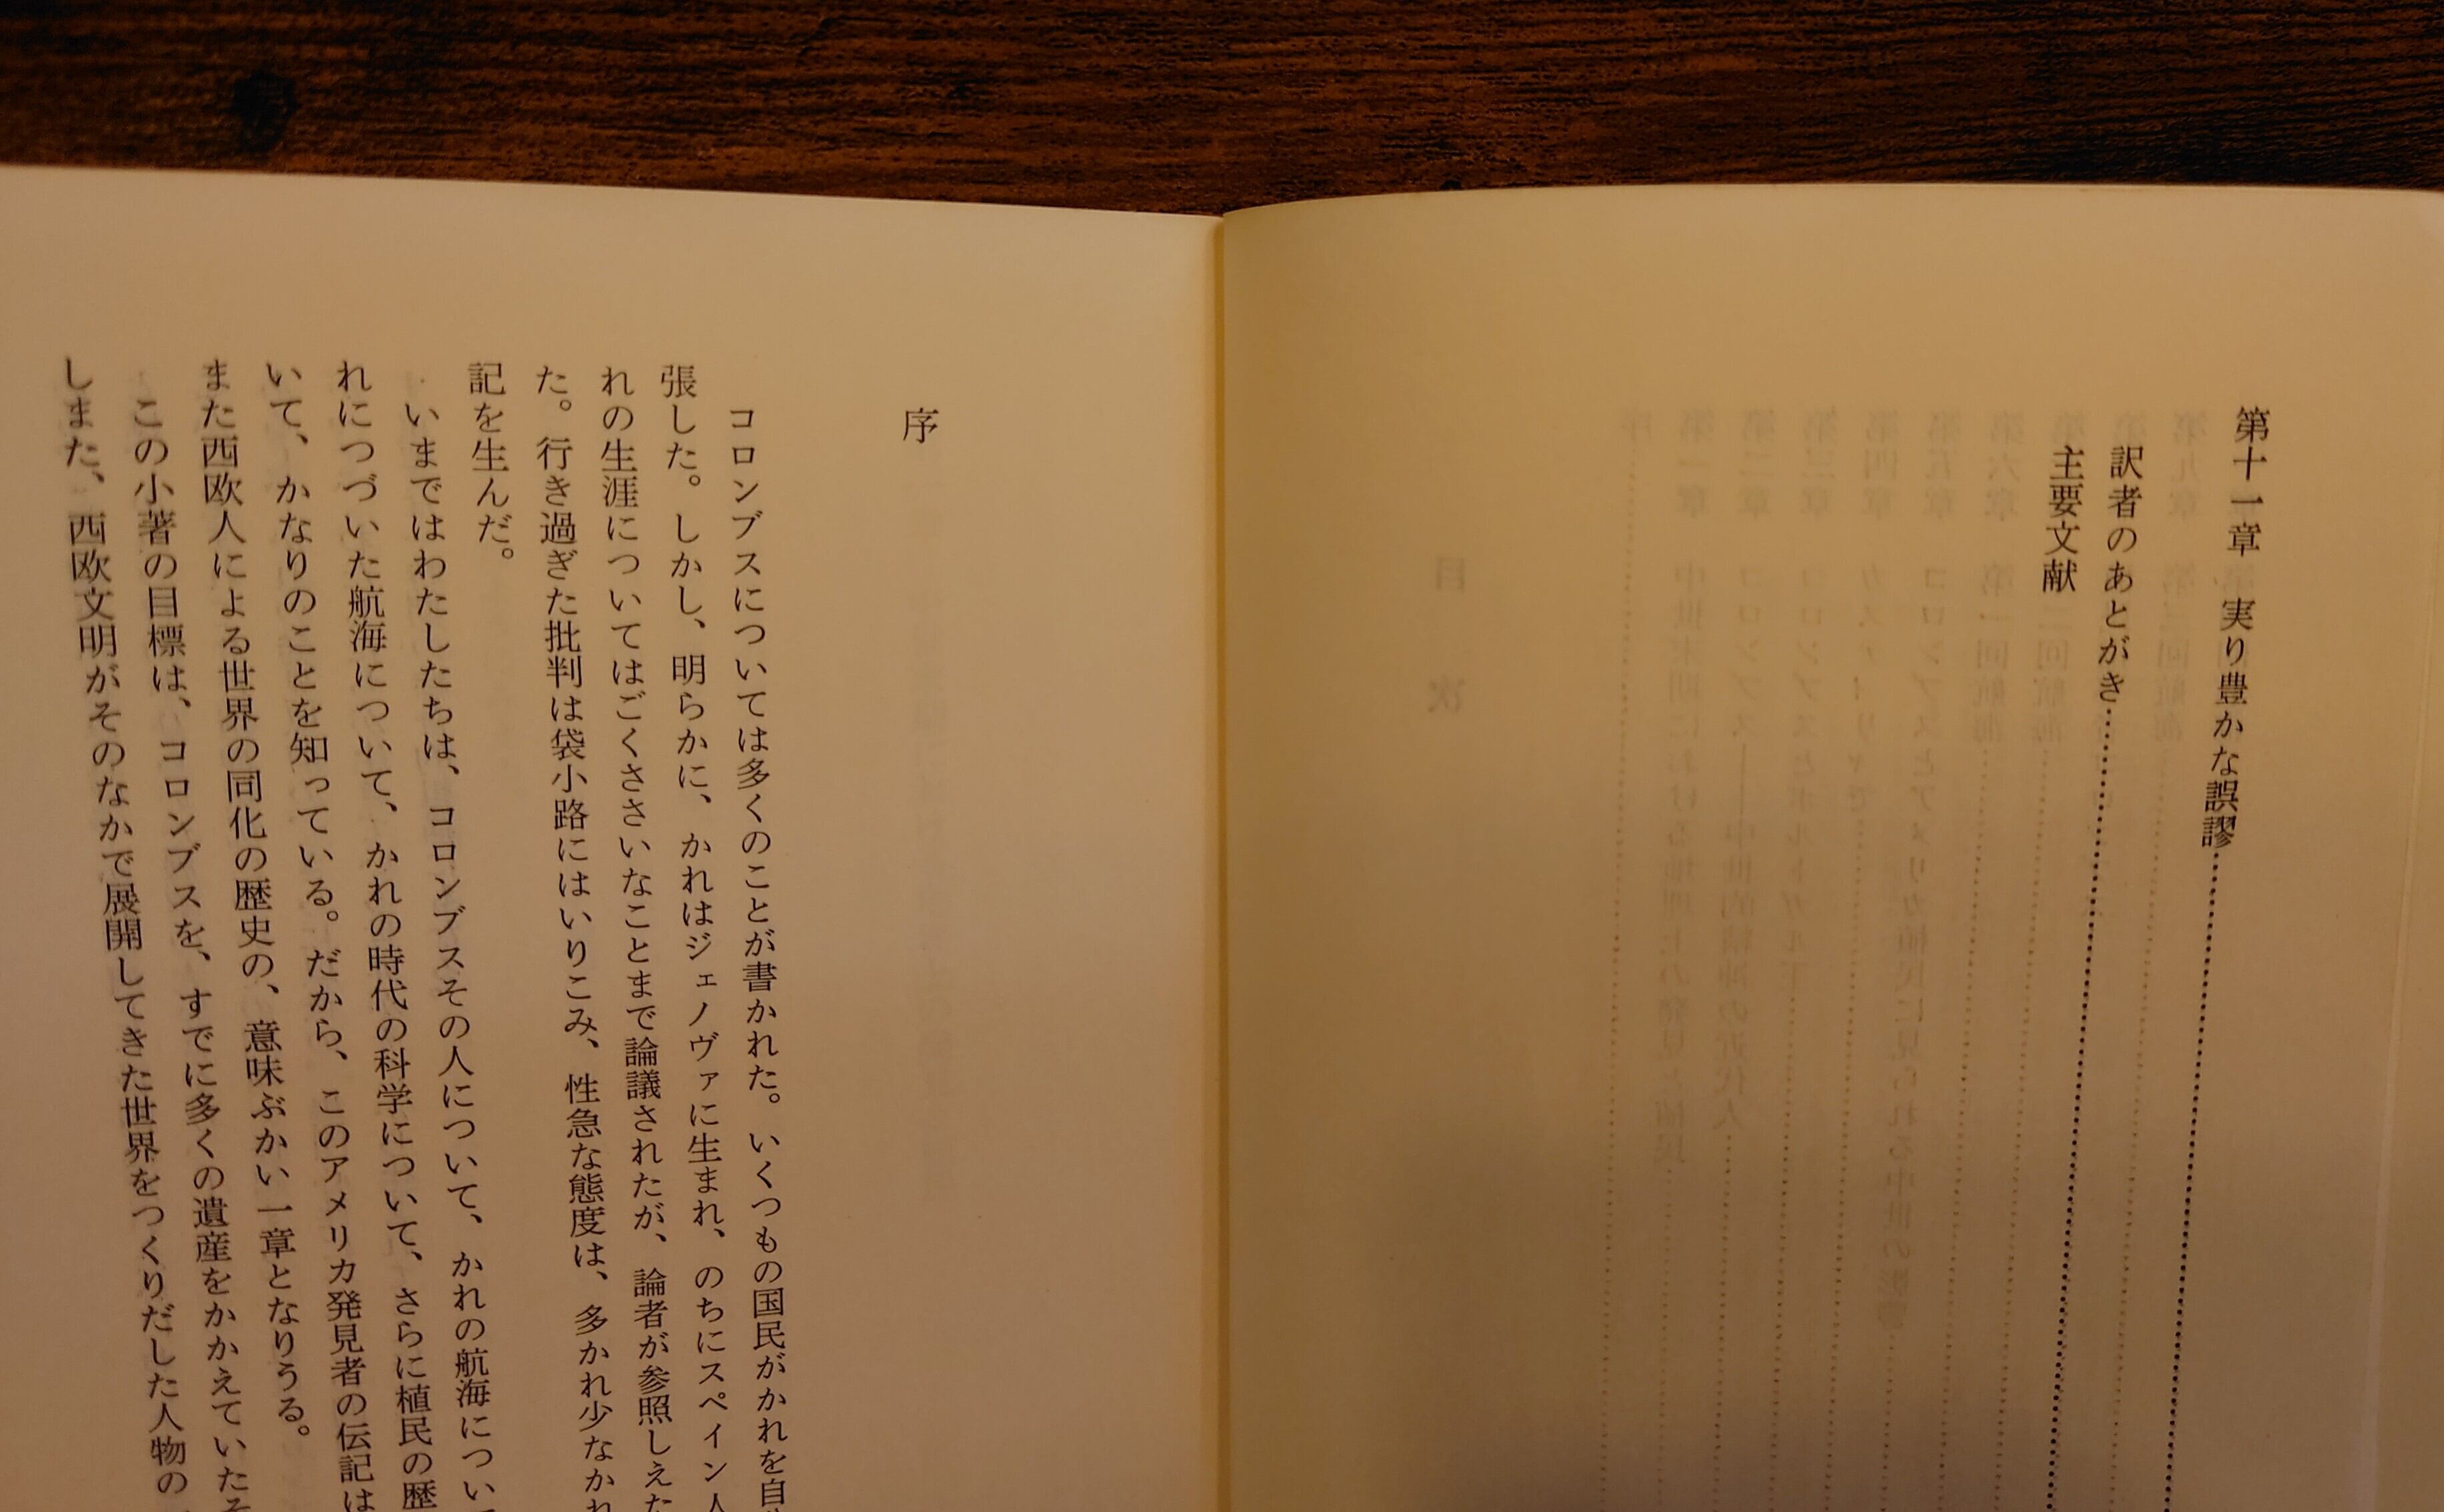 第十一章 実り豊かな誤謬
訳者のあとがき
主要文献
序
コロンブスについては多くのことが書かれた。いくつもの国民がかれを自
張した。しかし、明らかに、かれはジェノヴァに生まれ、のちにスペイン人
れの生涯についてはごくささいなことまで論議されたが、論者が参照しえた
た。行き過ぎた批判は袋小路にはいりこみ、性急な態度は、多かれ少なかれ
記を生んだ。
いまではわたしたちは、コロンブスその人について、かれの航海につい
れにつづいた航海について、かれの時代の科学について、さらに植民の歴
いて、かなりのことを知っている。だから、このアメリカ発見者の伝記は
また西欧人による世界の同化の歴史の、意味ぶかい一章となりうる。
この小著の目標は、コロンブスを、すでに多くの遺産をかかえていたそ
しまた、西欧文明がそのなかで展開してきた世界をつくりだした人物の